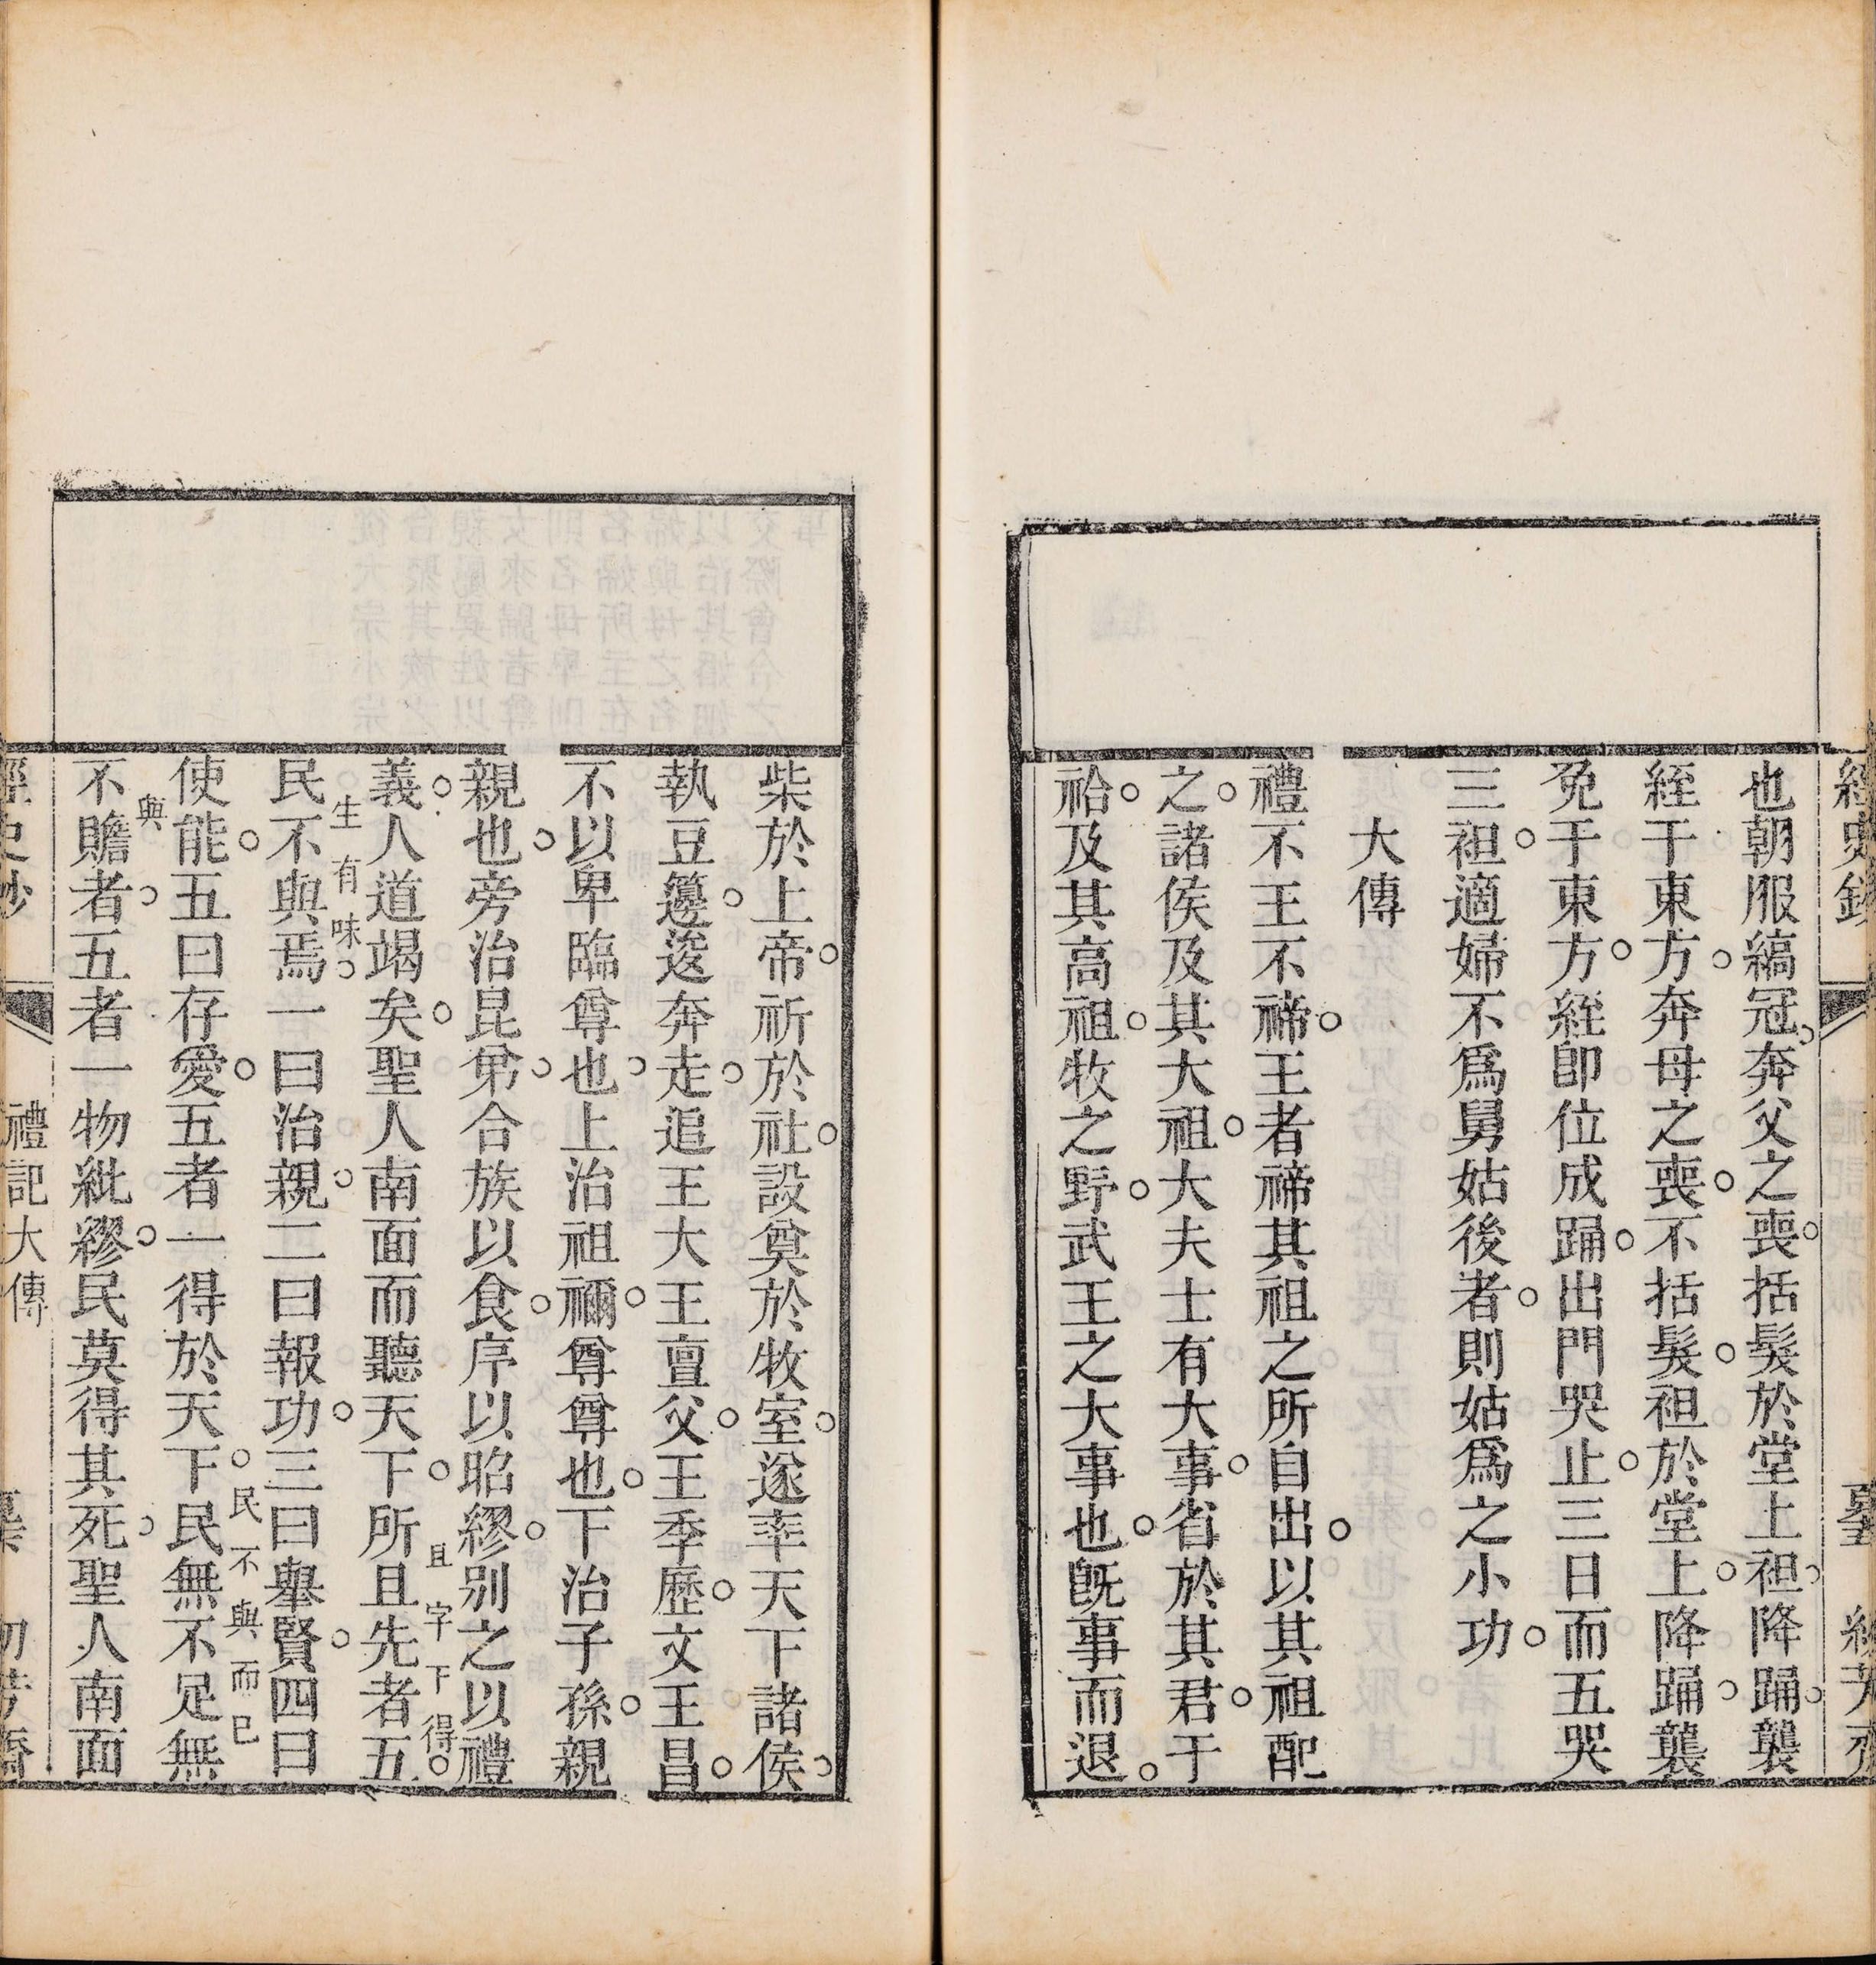 經史鈔
也朝服縞冠。奔父之喪。括髮於堂上袒。降踊。襲
絰于東方。奔母之喪。不括髮。袒於堂上。降踊。襲
免于東方。絰即位成踊。出門哭止。三日而五哭
三袒。適婦不爲舅姑後者。則姑爲之小功。
大傳
禮不王不禘。王者禘其祖之所自出。以其祖配
之。諸侯及其大祖。大夫士有大事。省於其君。于
祫。及其高祖。牧之野。武王之大事也。旣事而退。
柴於上帝。祈於社。設奠於牧室。遂率天下諸侯。
執豆籩。逡奔走。追王大王亶父。王季歷。文王昌。
不以卑臨尊也。上治祖禰。尊尊也。下治子孫。親
親也。旁治昆弟。合族以食。序以昭繆。别之以禮
義。人道竭矣。聖人南面而聽天下。所且先者五
且字下得。
民不與焉。一曰治親。二曰報功。三曰舉賢。四曰
生有味。
使能。五曰存愛。五者一得於天下。民無不足無
民不與而已
不贍者。五者一物紕繆。民莫得其死。聖人南面
與
禮記大傳